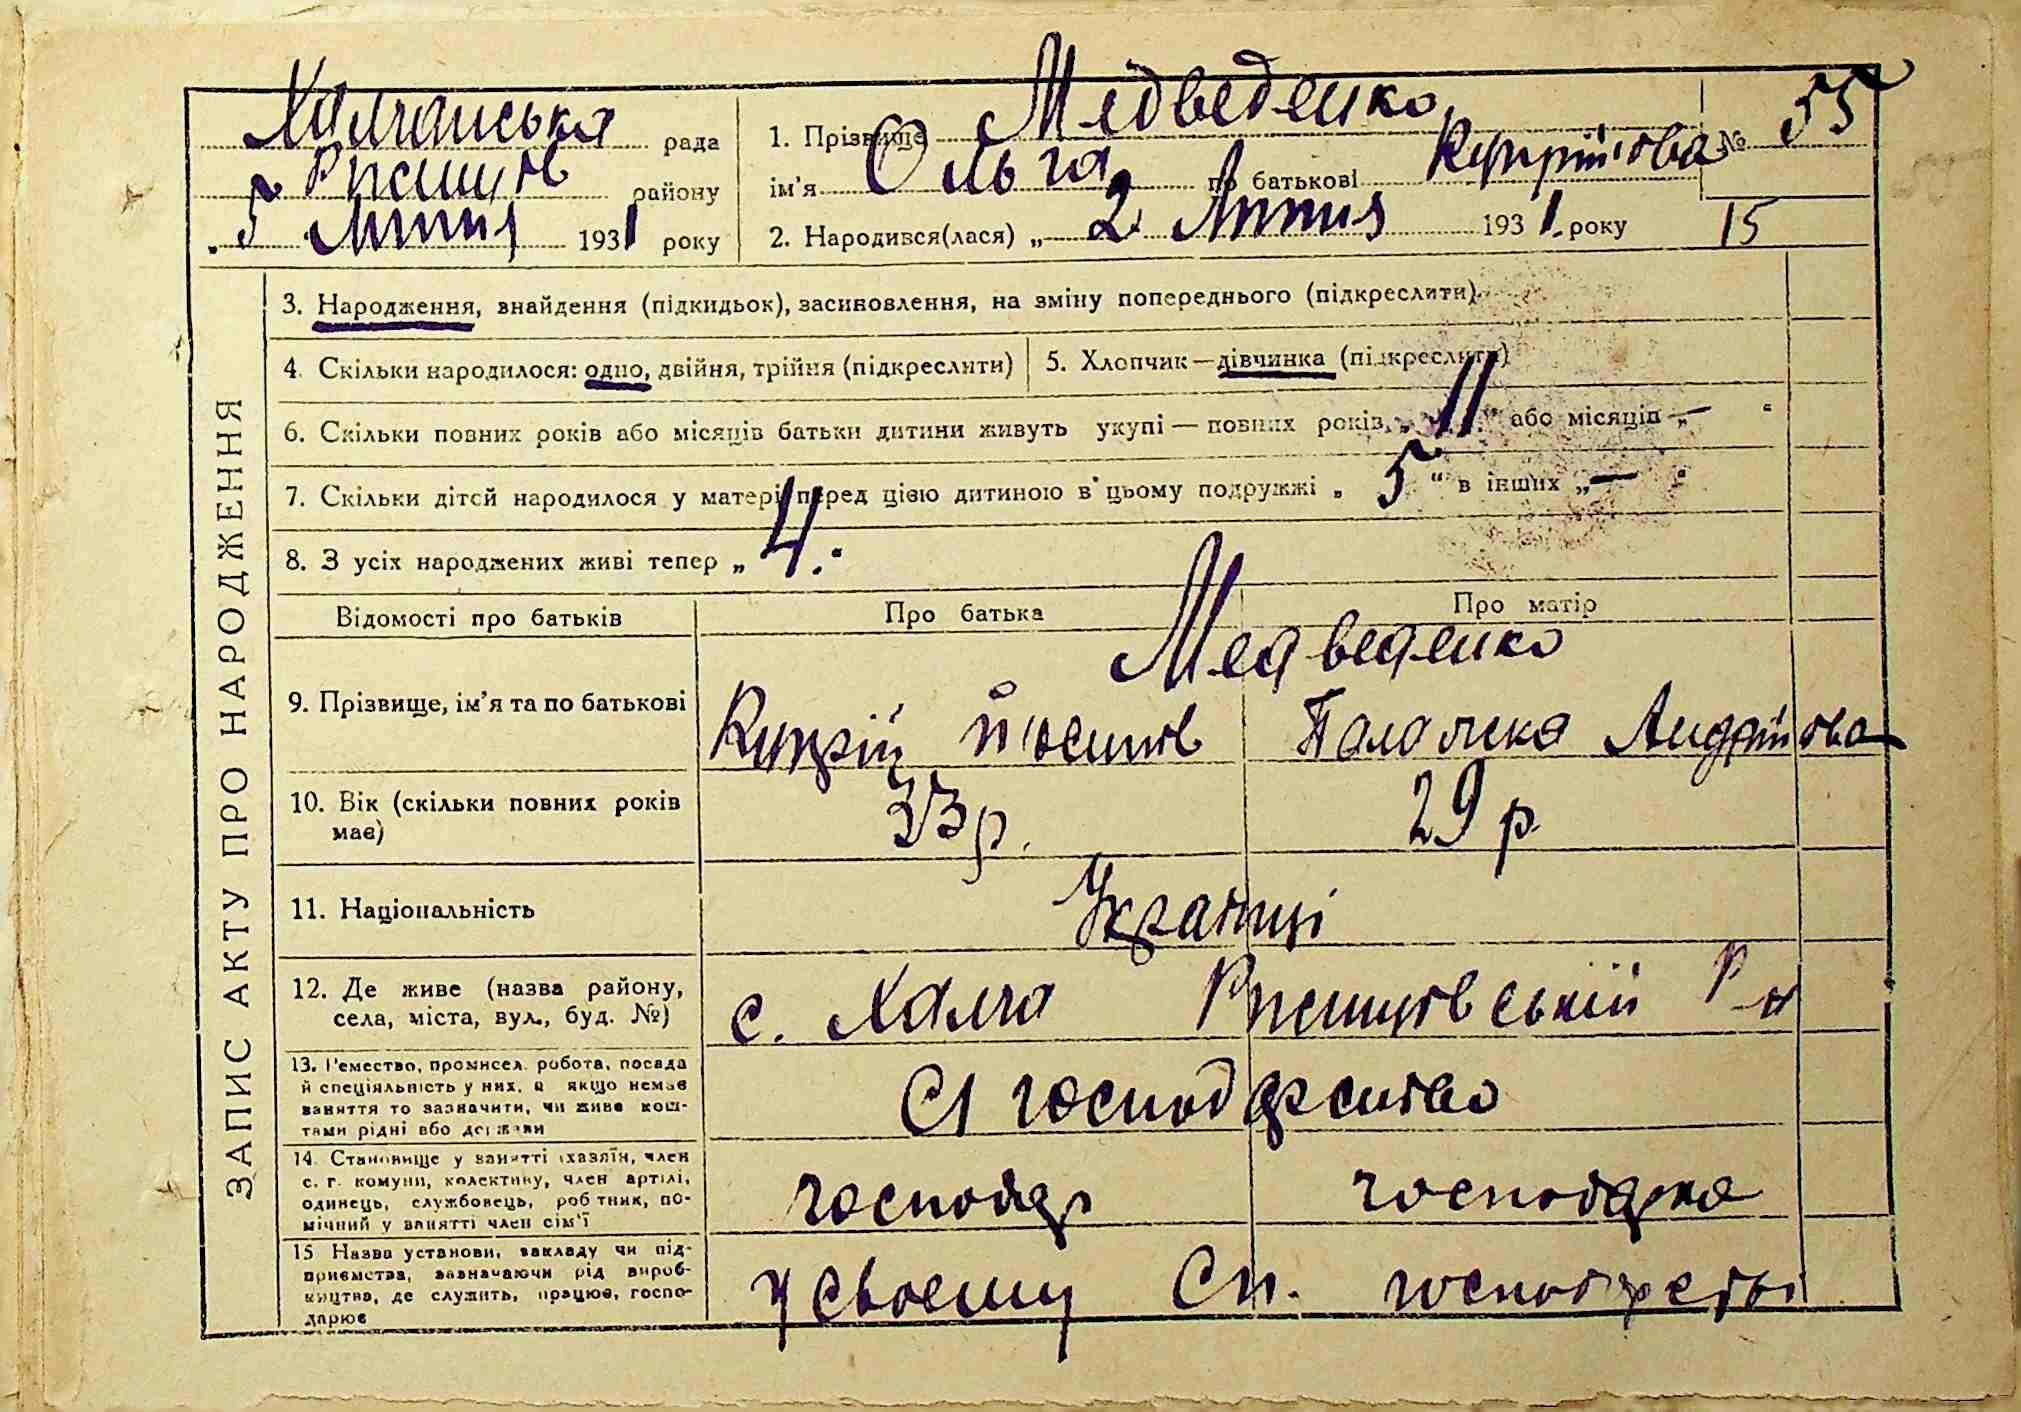 Халчанська рада
Ржищів району
5 Липня 1931 року
1. Прізвище Медведенко
ім'я Ольга по батькові Купріїова
№ 55
2. Народився(лася) „ 2 Липня 1931. року
15
ЗАПИС АКТУ ПРО НАРОДЖЕННЯ
3. Народження, внайдення (підкидьок), засиновлення, на зміну попереднього (підкреслити)
4. Скільки народилося: одно, двійня, трійня (підкреслити)
5. Хлопчик — дівчинка (підкреслити)
6. Скільки повних років або місяців батьки дитини живуть укупі — повних років „ 11 " або місяців „ — "
7. Скільки дітей народилося у матері перед цією дитиною в цьому подружжі „ 5 " в інших „ — "
8. З усіх народжених живі тепер „ 4.
Відомості про батьків
Про батька
Про матір
9. Прізвище, ім'я та по батькові
Медведенко
Купрій Йосипів
Палажка Андріїова
10. Вік (скільки повних років
має)
33 р.
29 р.
11. Національність
Українці
12. Де живе (назва району,
села, міста, вул., буд. №)
с. Халча Ржищівській р-н
13. Ремество, промисел, робота, посада
й спеціяльність у них, а якщо немає
заняття то зазначити, чи живе кош-
тами рідні або держави
Сг господарство
14. Становище у занятті (хазяїн, член
с. г. комуни, колективу, член артілі,
одинець, службовець, робітник, по-
мічний у занятті член сім'ї
господар
господарка
15 Назва установи, закладу чи під-
приємства, зазначаючи рід вироб-
ництва, де служить, працює, госпо-
дарює
у своєму Сп. господарстві